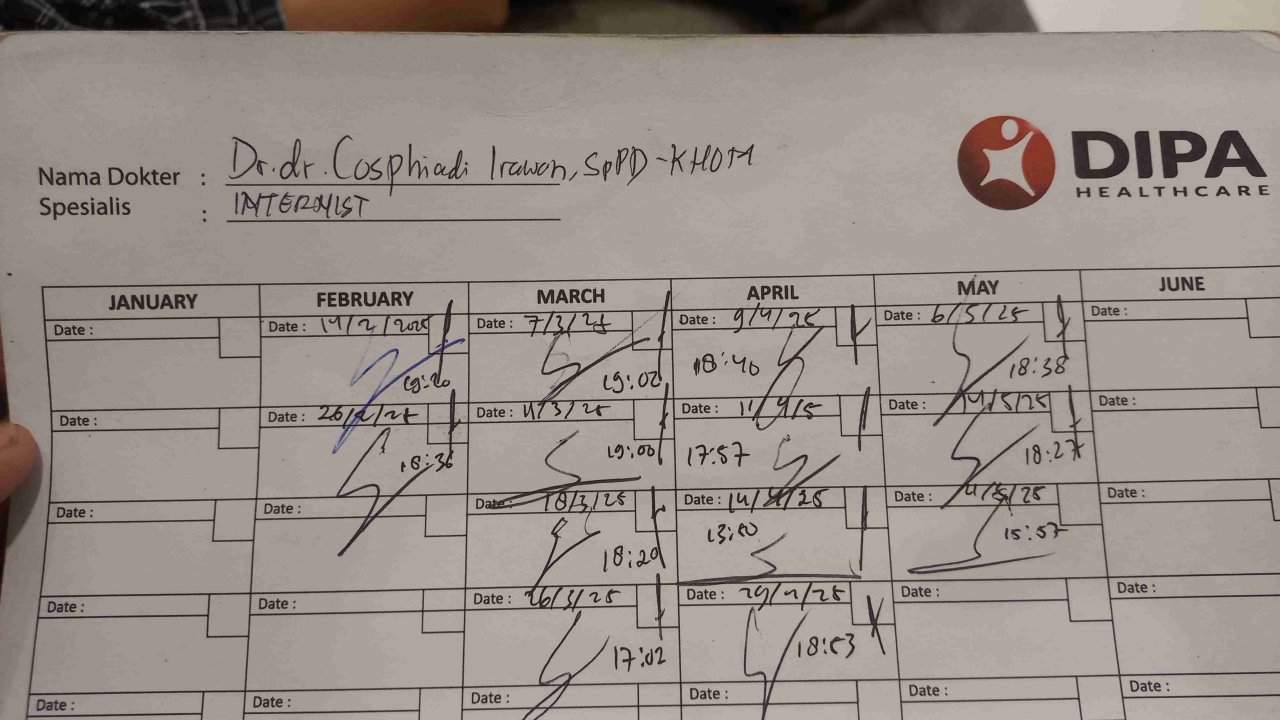 DIPA
HEALTHCARE
Nama Dokter : Dr. dr. Cosphiadi Irawan, SpPD-KHOM
Spesialis : INTERNIST
JANUARY FEBRUARY MARCH APRIL MAY JUNE
Date : Date : 14/2/2025 Date : 7/3/25 Date : 9/4/25 Date : 6/5/25 Date :
19:20 19:02 18:40 18:38
Date : Date : 26/2/25 Date : 11/3/25 Date : 11/4/5 Date : 14/5/25 Date :
18:36 19:00 17:57 18:27
Date : Date : Date : 18/3/25 Date : 14/4/25 Date : Date :
18:20 13:50 15:57
Date : Date : Date : 26/3/25 Date : 29/4/25 Date : Date :
17:02 18:53
Date : Date : Date : Date : Date : Date :